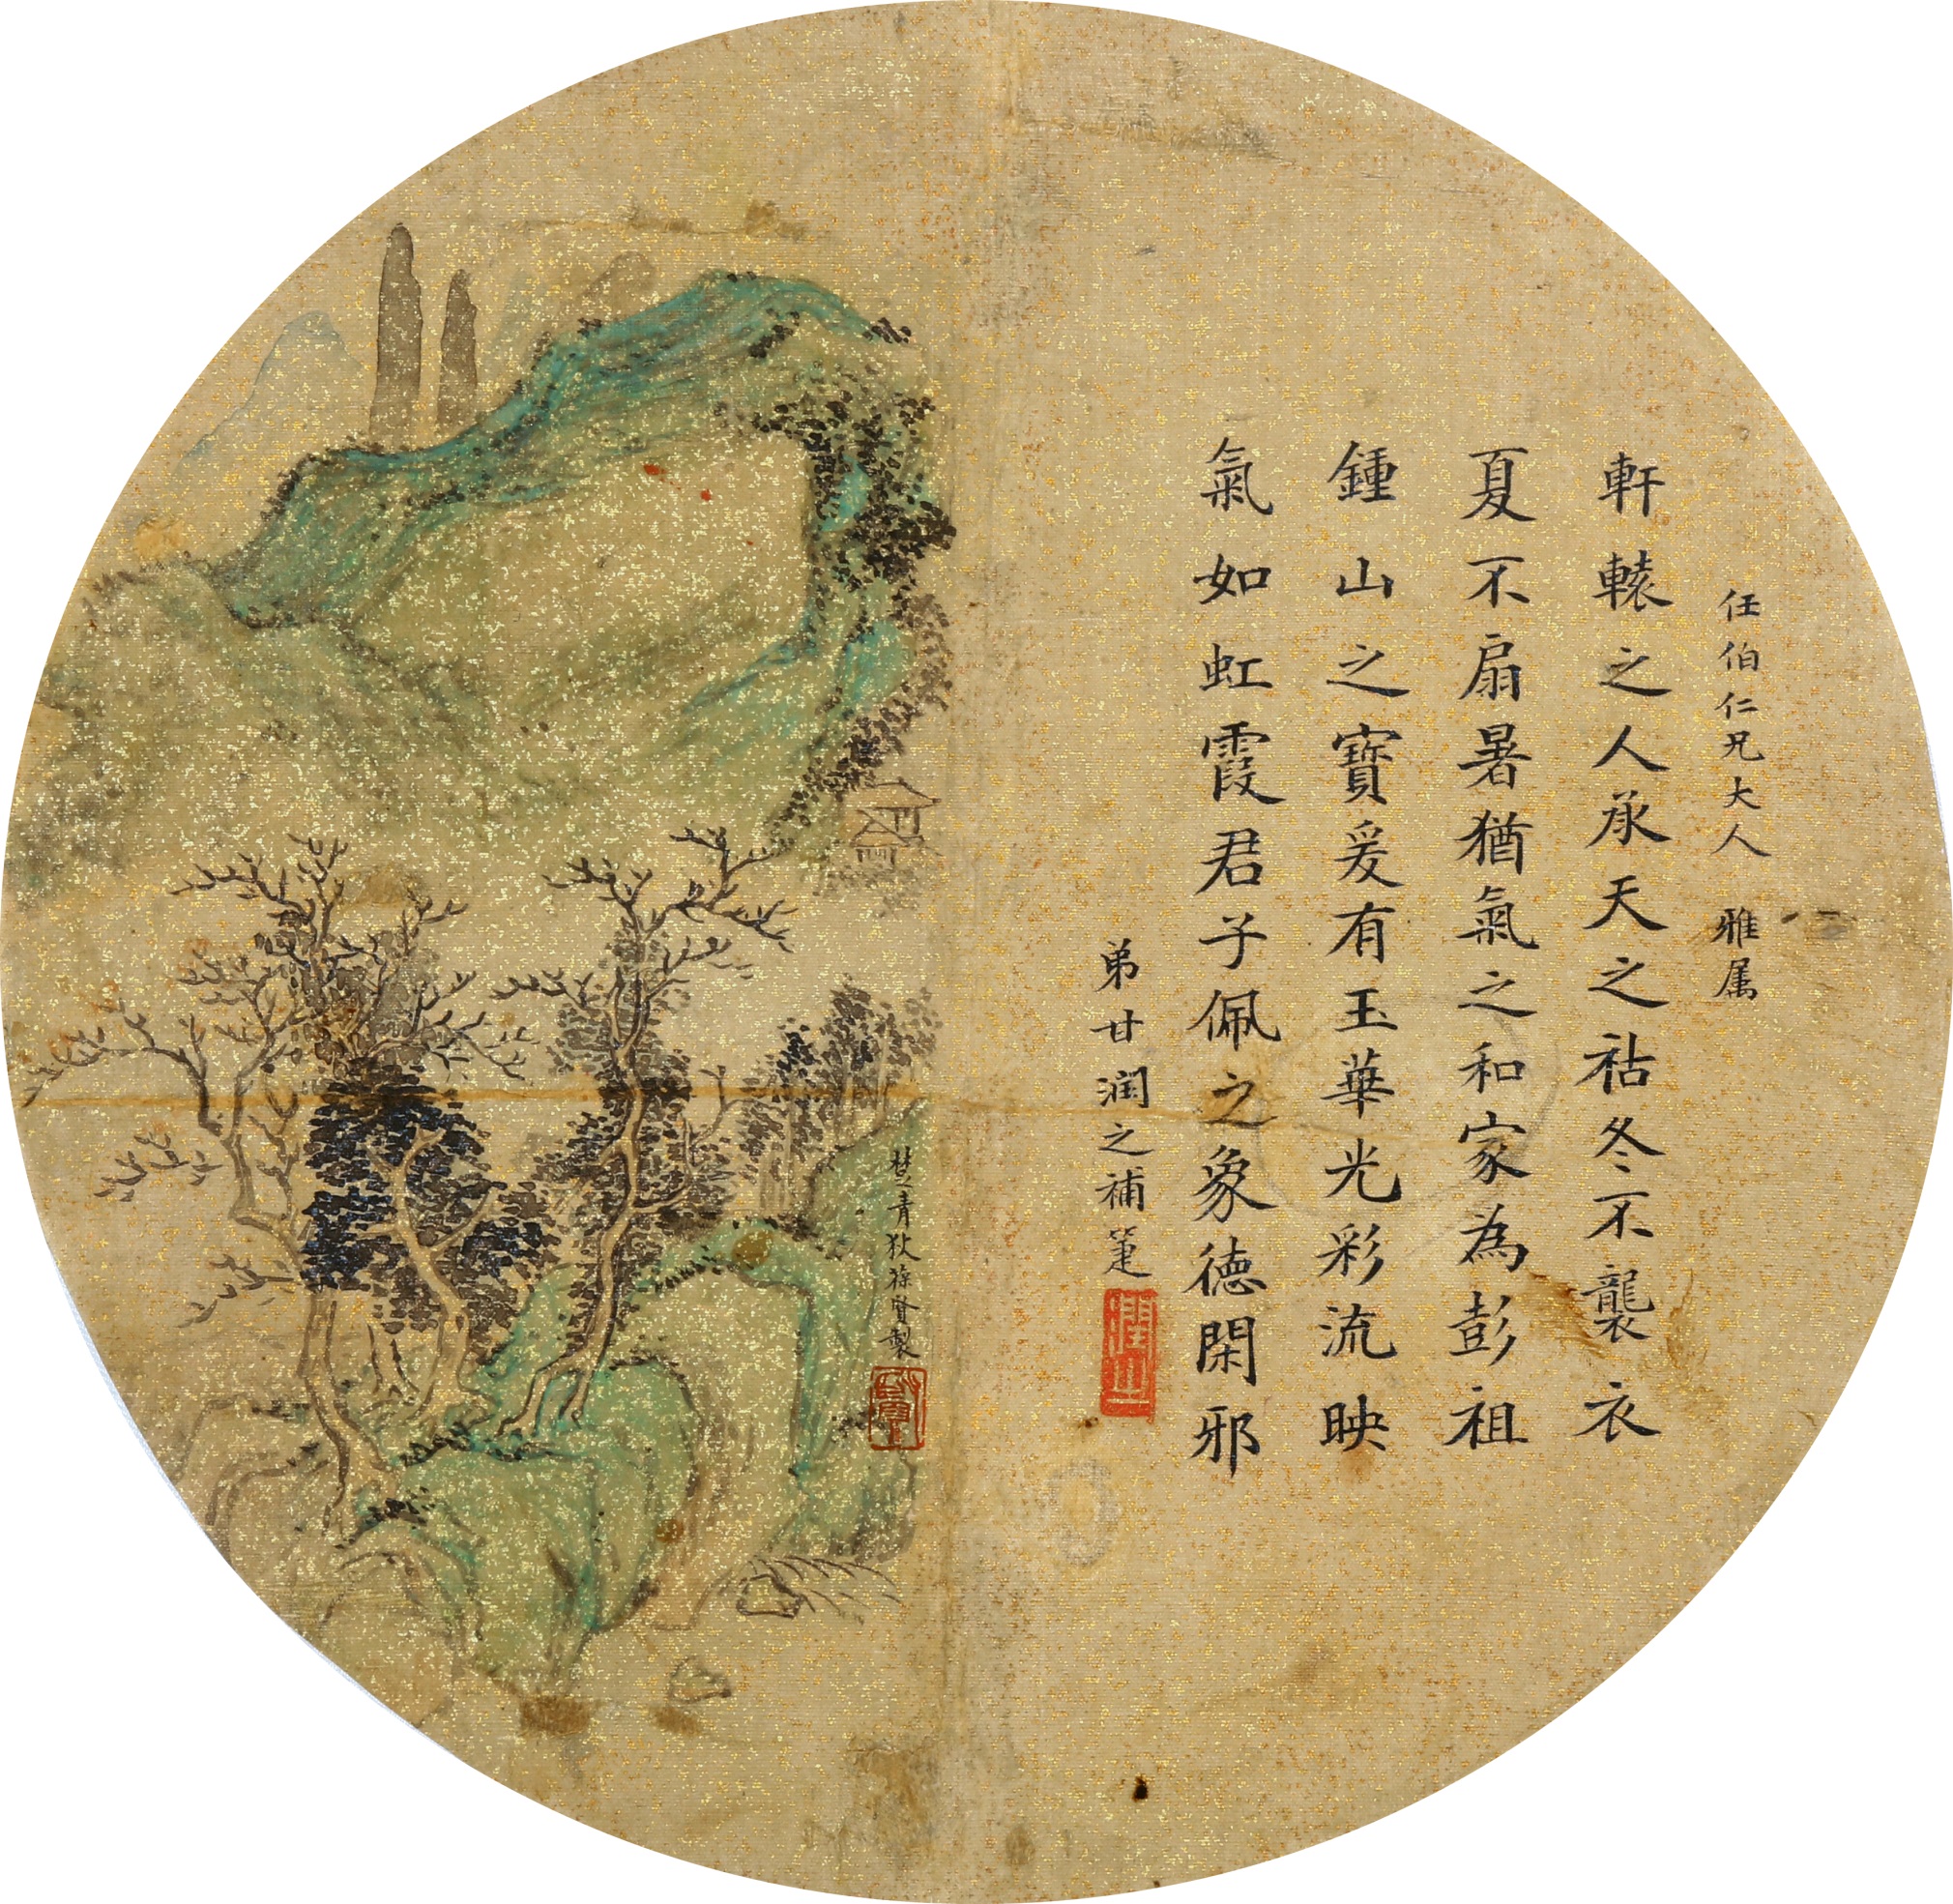 任伯仁兄大人 雅属
軒轅之人承天之祜冬不襲衣
夏不扇暑猶氣之和家為彭祖
鍾山之寶爰有玉華光彩流映
氣如虹霞君子佩之象德閑邪
弟甘潤之補箑
潤之
楚青狄葆賢製